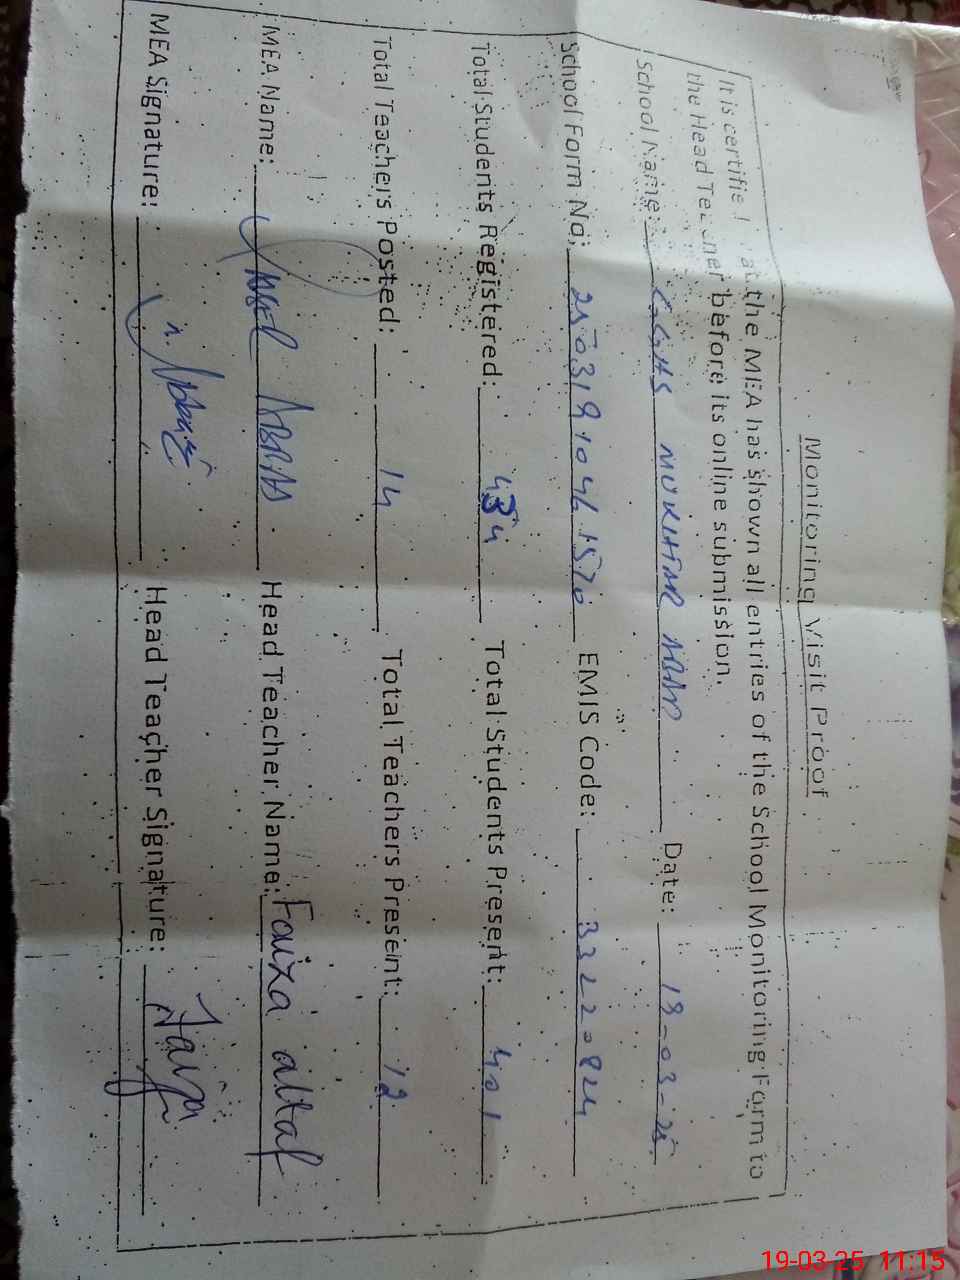 Monitoring Visit Proof
It is certified that the MEA has shown all entries of the School Monitoring Farm to
the Head Teacher before its online submission.
School Name: GGHS MUKHTAR Date: 19-03-25
School Form No: EMIS Code: 33220824
Total Students Registered: 454 Total Students Present: 401
Total Teachers Posted: 14 Total Teachers Present: 12
MEA Name: Head Teacher Name: Fouza altaf
MEA Signature: Head Teacher Signature:
19-03-25 11:15